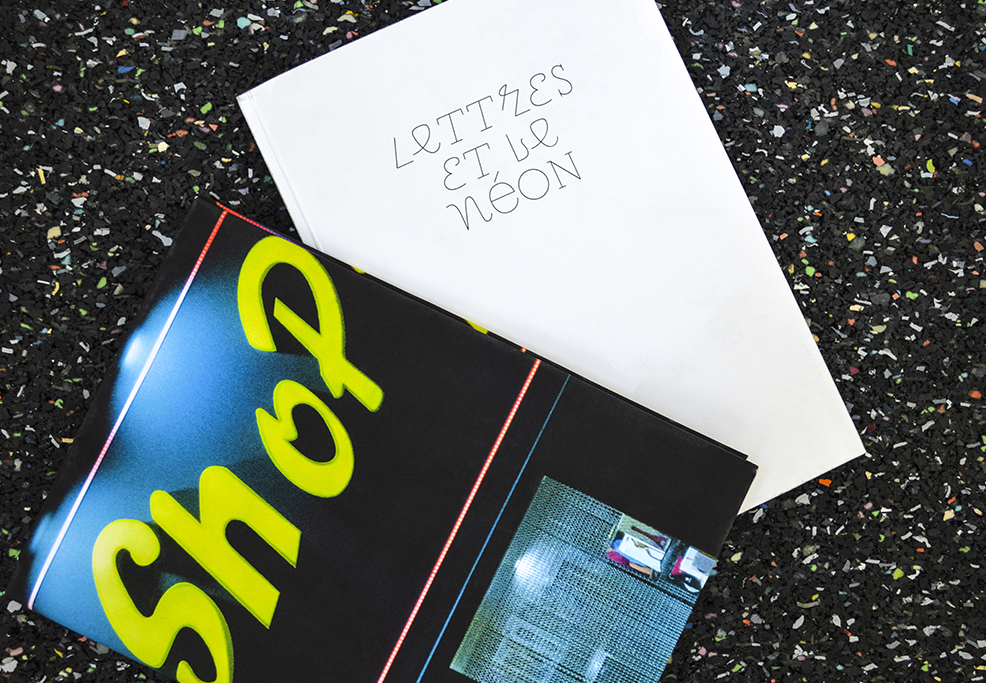 LeTTRES
ET Le
NéON
ShoP